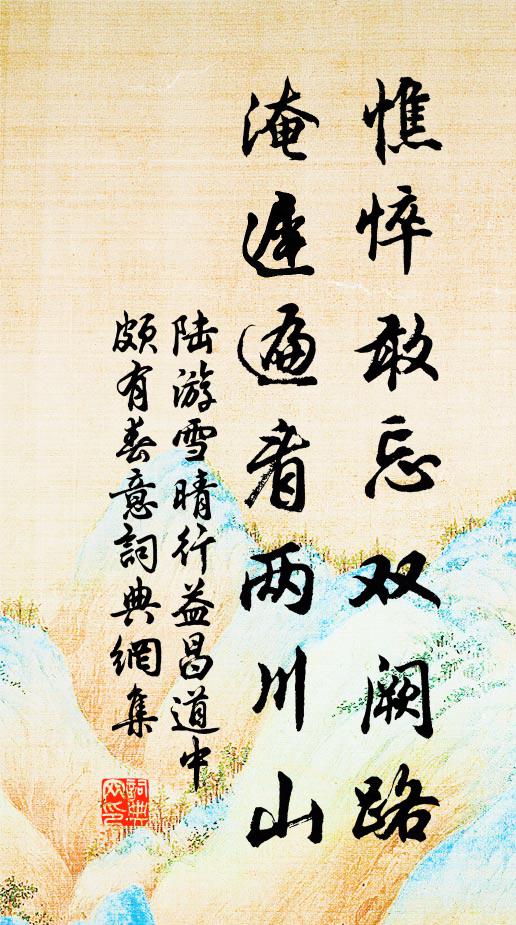 憔悴敢忘双阙路
淹迟遍看两川山
陆游雪晴行益昌道中
颇有春意詞典網集
詞典
网印